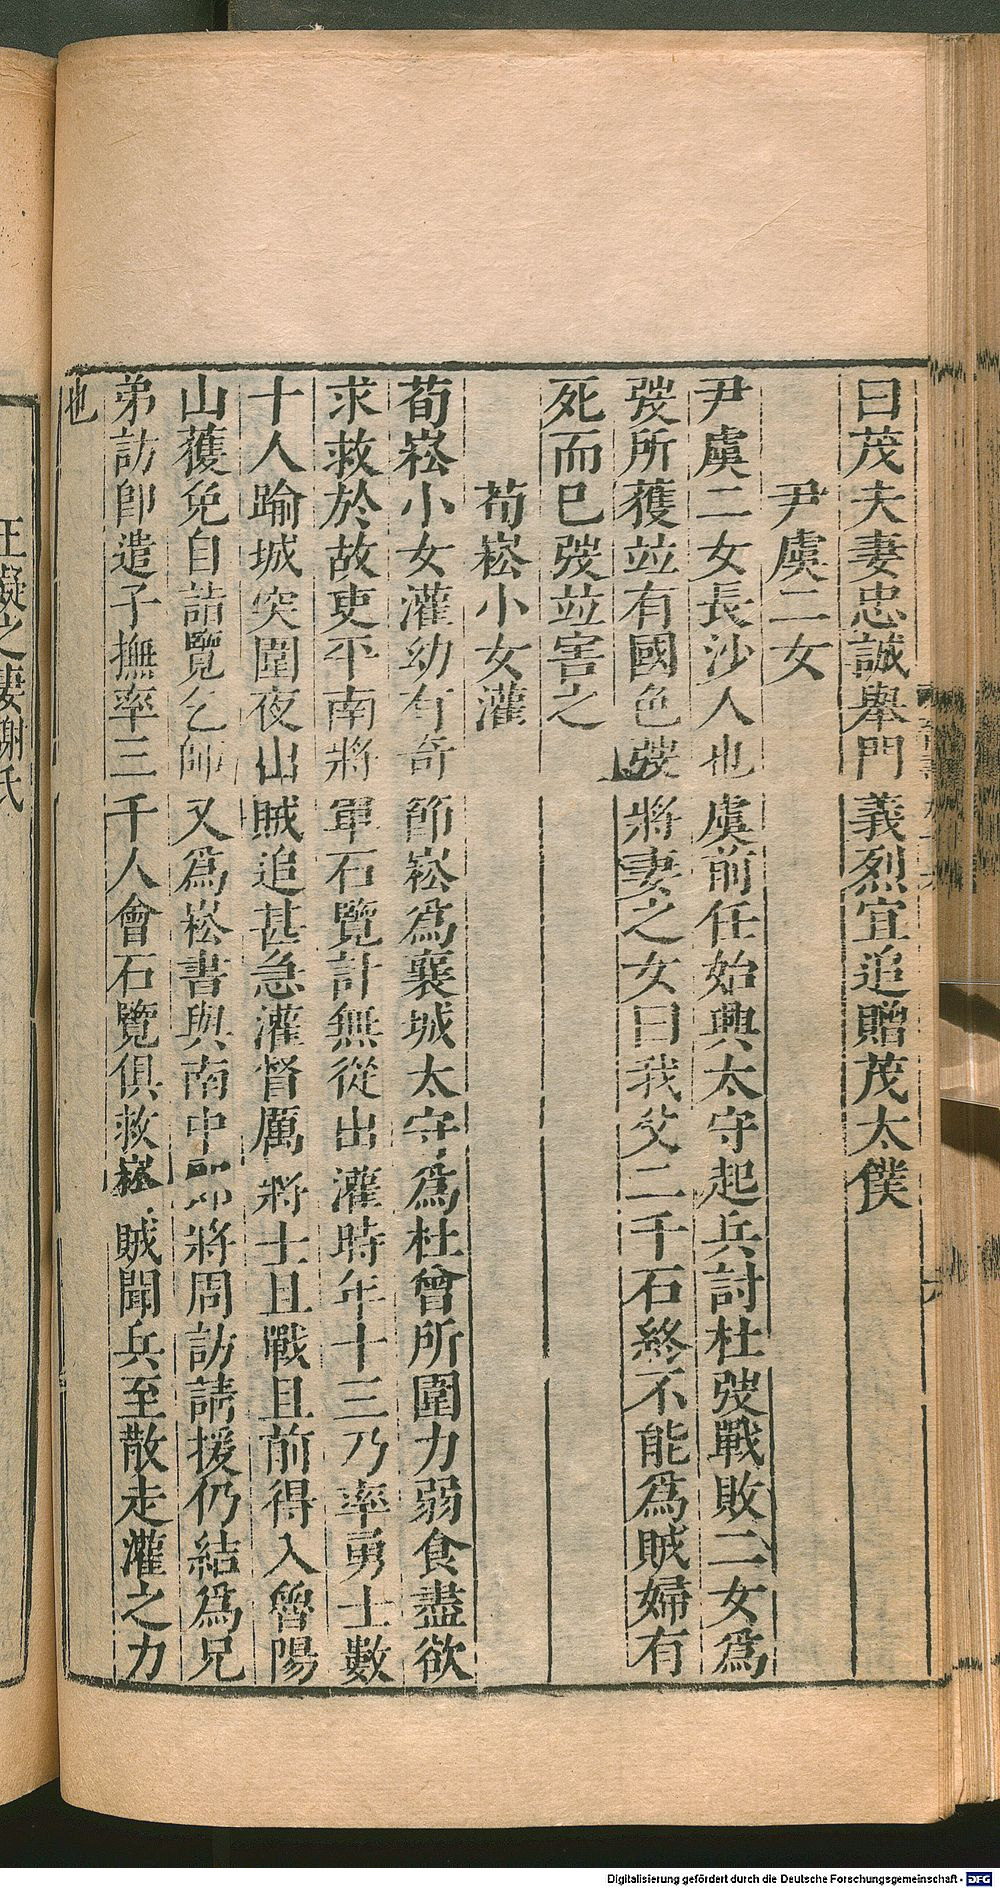 曰茂夫妻忠誠舉門義烈宜追贈茂太僕
尹虞二女
尹虞二女長沙人也虞前任始興太守起兵討杜弢戰敗二女爲
弢所獲並有國色弢將妻之女曰我父二千石終不能爲賊婦有
死而已弢並害之
荀崧小女灌
荀崧小女灌幼有奇節崧爲襄城太守爲杜曾所圍力弱食盡欲
求救於故吏平南將軍石覽計無從出灌時年十三乃率勇士數
十人踰城突圍夜出賊追甚急灌督厲將士且戰且前得入魯陽
山獲免自詣覽乞師又爲崧書與南中郎將周訪請援仍結爲兄
弟訪卽遣子撫率三千人會石覽俱救崧賊聞兵至散走灌之力
也
王凝之妻謝氏
Digitalisierung gefördert durch die Deutsche Forschungsgemeinschaft - DFG